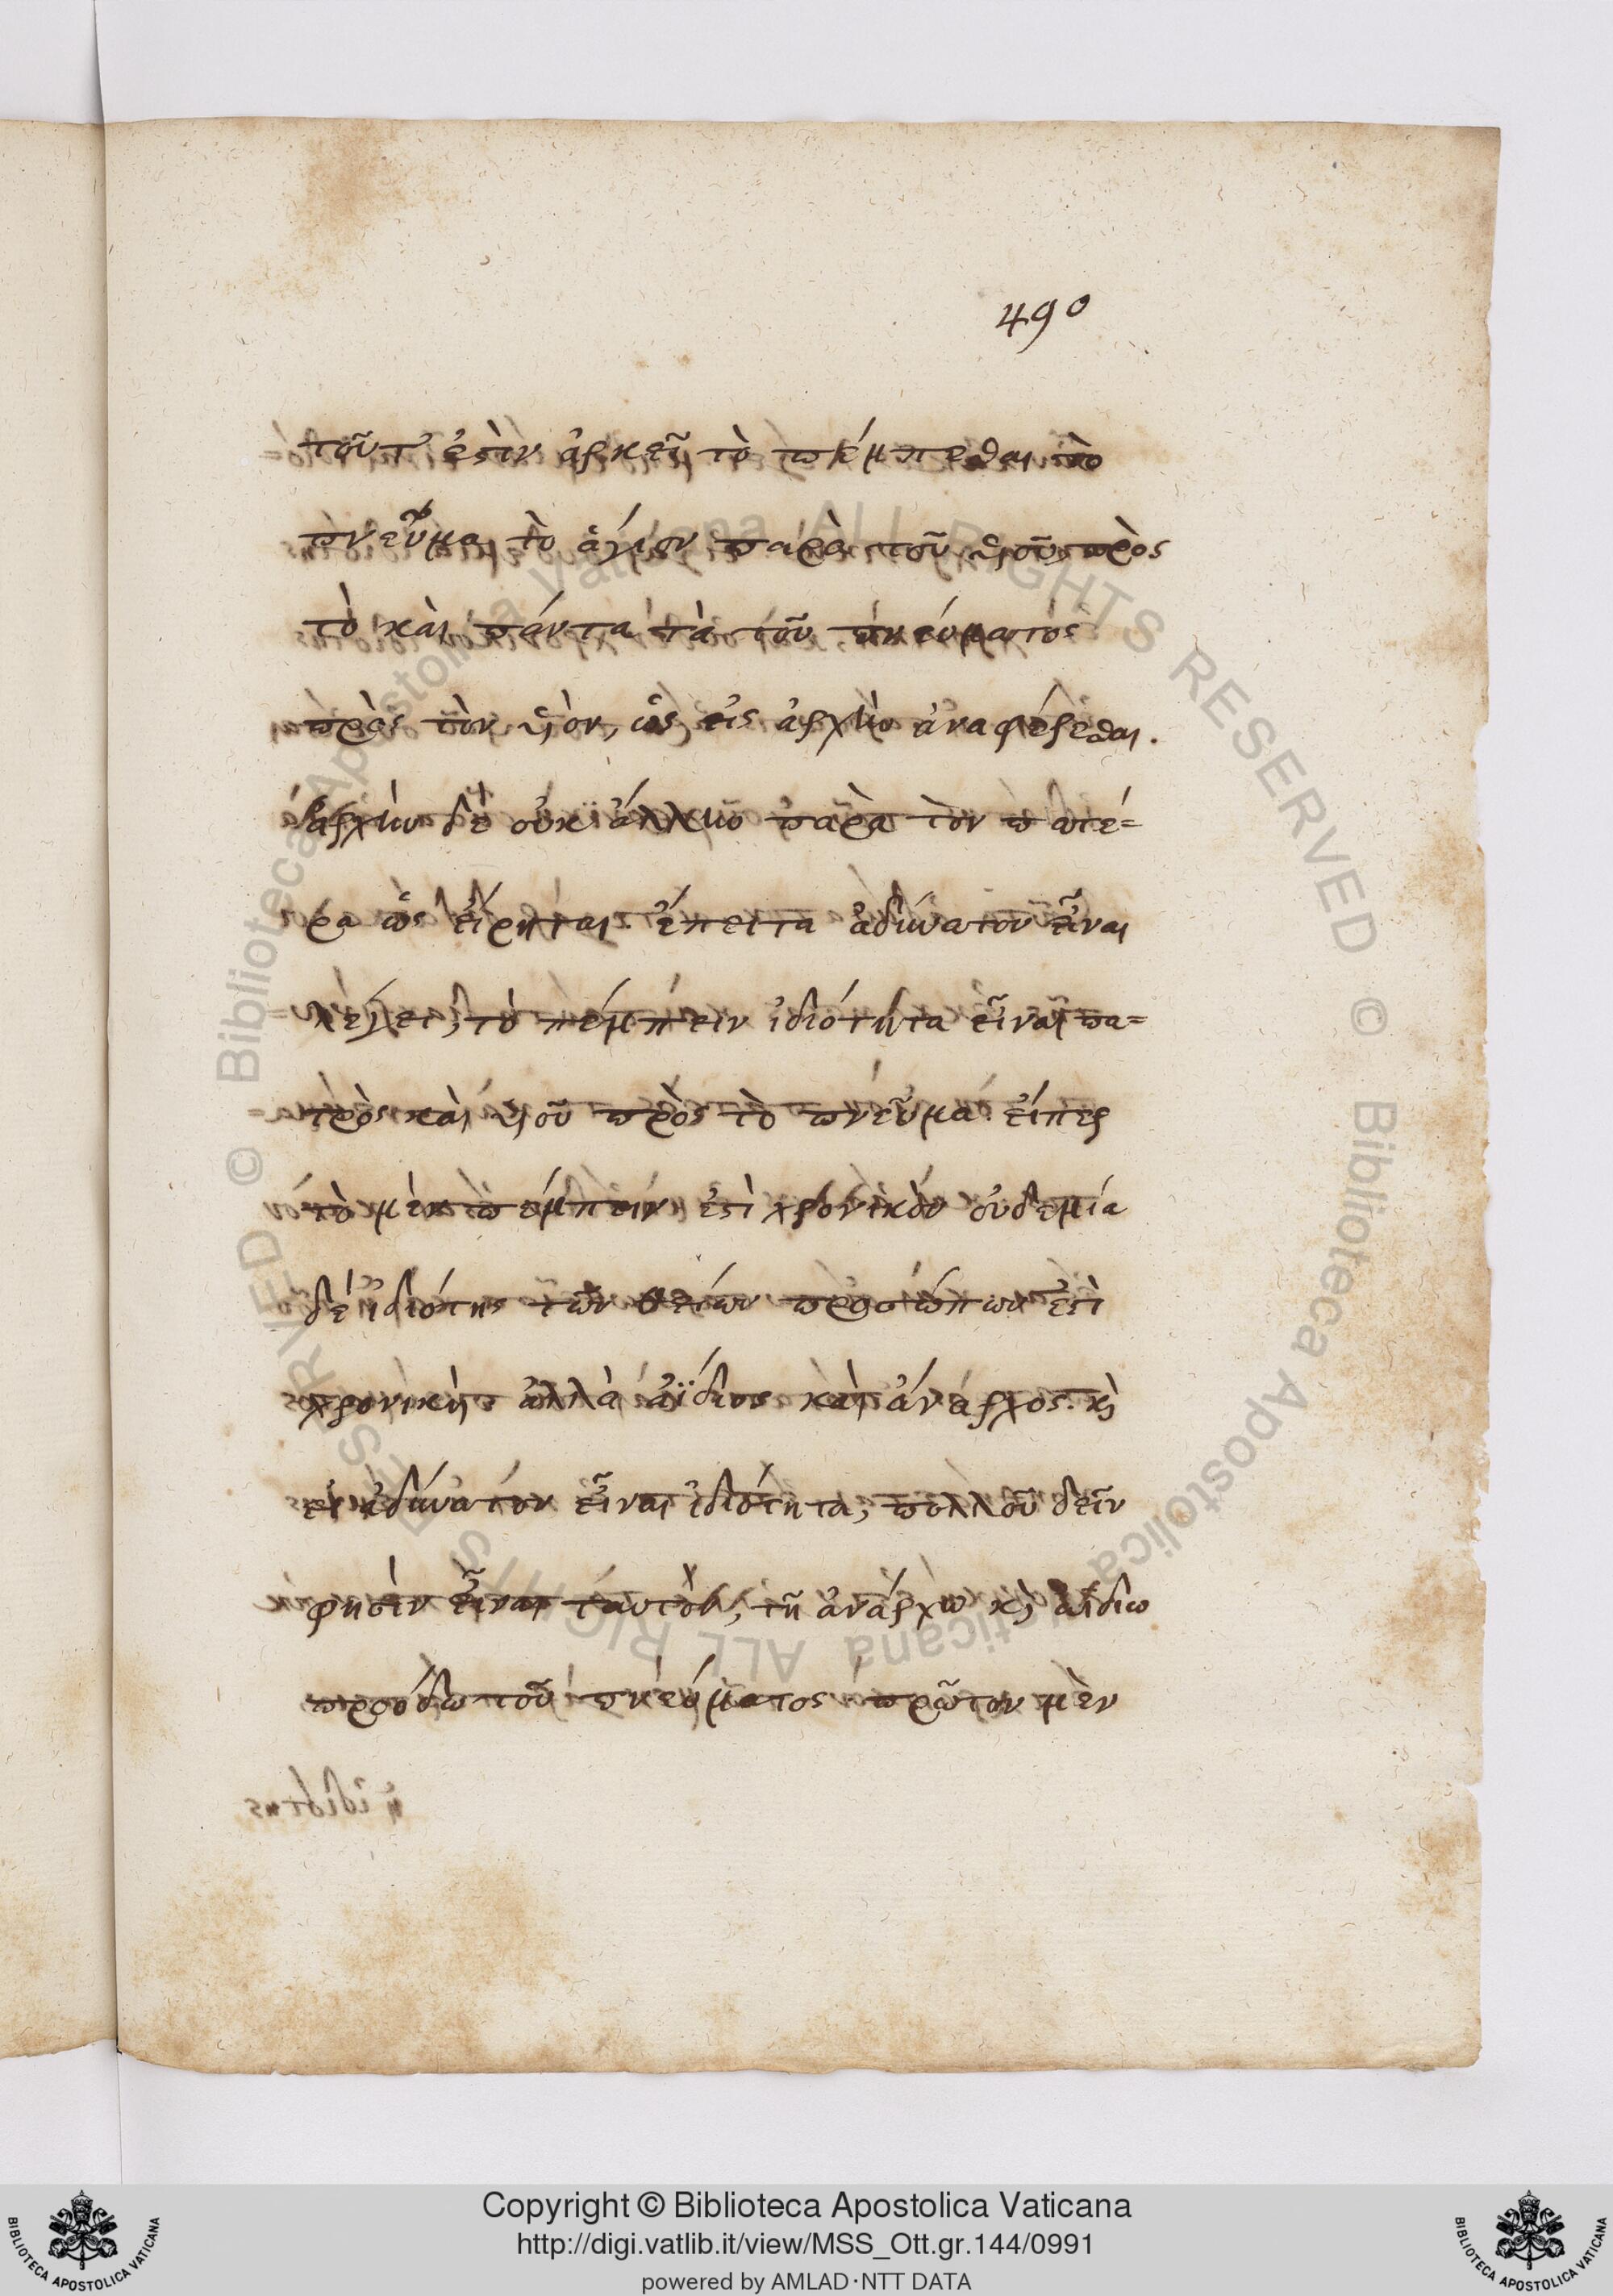 490
τοῦτ' ἐστὶν ἀρκεῖ τὸ πέμπεσθαι τὸ
πνεῦμα τὸ ἅγιον παρὰ τοῦ υἱοῦ πρὸς
τὸ καὶ πάντα τὰ τοῦ πνεύματος
πρὸς τὸν υἱὸν, ὡς εἰς ἀρχὴν ἀναφέρεσθαι.
ἀρχὴν δὲ οὐκ ἄλλην παρὰ τὸν πατέ=
ρα ὡς εἴρηται. ἔπειτα ἀδύνατον εἶναι
λέγει, τὸ πέμπειν ἰδιότητα εἶναι πα=
τρὸς καὶ υἱοῦ πρὸς τὸ πνεῦμα. εἴπερ
τὸ μὲν πέμπειν ἐστὶ χρονικὸν οὐδεμία
δὲ ἰδιότης τῶν θείων προσώπων ἐστὶ
χρονικὴ ἀλλὰ ἀΐδιος καὶ ἄναρχος. κ
εἰ ἀδύνατον εἶναι ἰδιότητα, πολλοῦ δεῖν
φησὶν εἶναι ταυτὸν, τῇ ἀνάρχω κ ἀϊδίω
προόδω τοῦ πνεύματος πρῶτον μὲν
Copyright © Biblioteca Apostolica Vaticana
http://digi.vatlib.it/view/MSS_Ott.gr.144/0991
powered by AMLAD·NTT DATA
BIBLIOTECA APOSTOLICA VATICANA
BIBLIOTECA APOSTOLICA VATICANA
© Biblioteca Apostolica Vaticana ALL RIGHTS RESERVED © Biblioteca Apostolica Vaticana ALL RIGHTS RESERVED